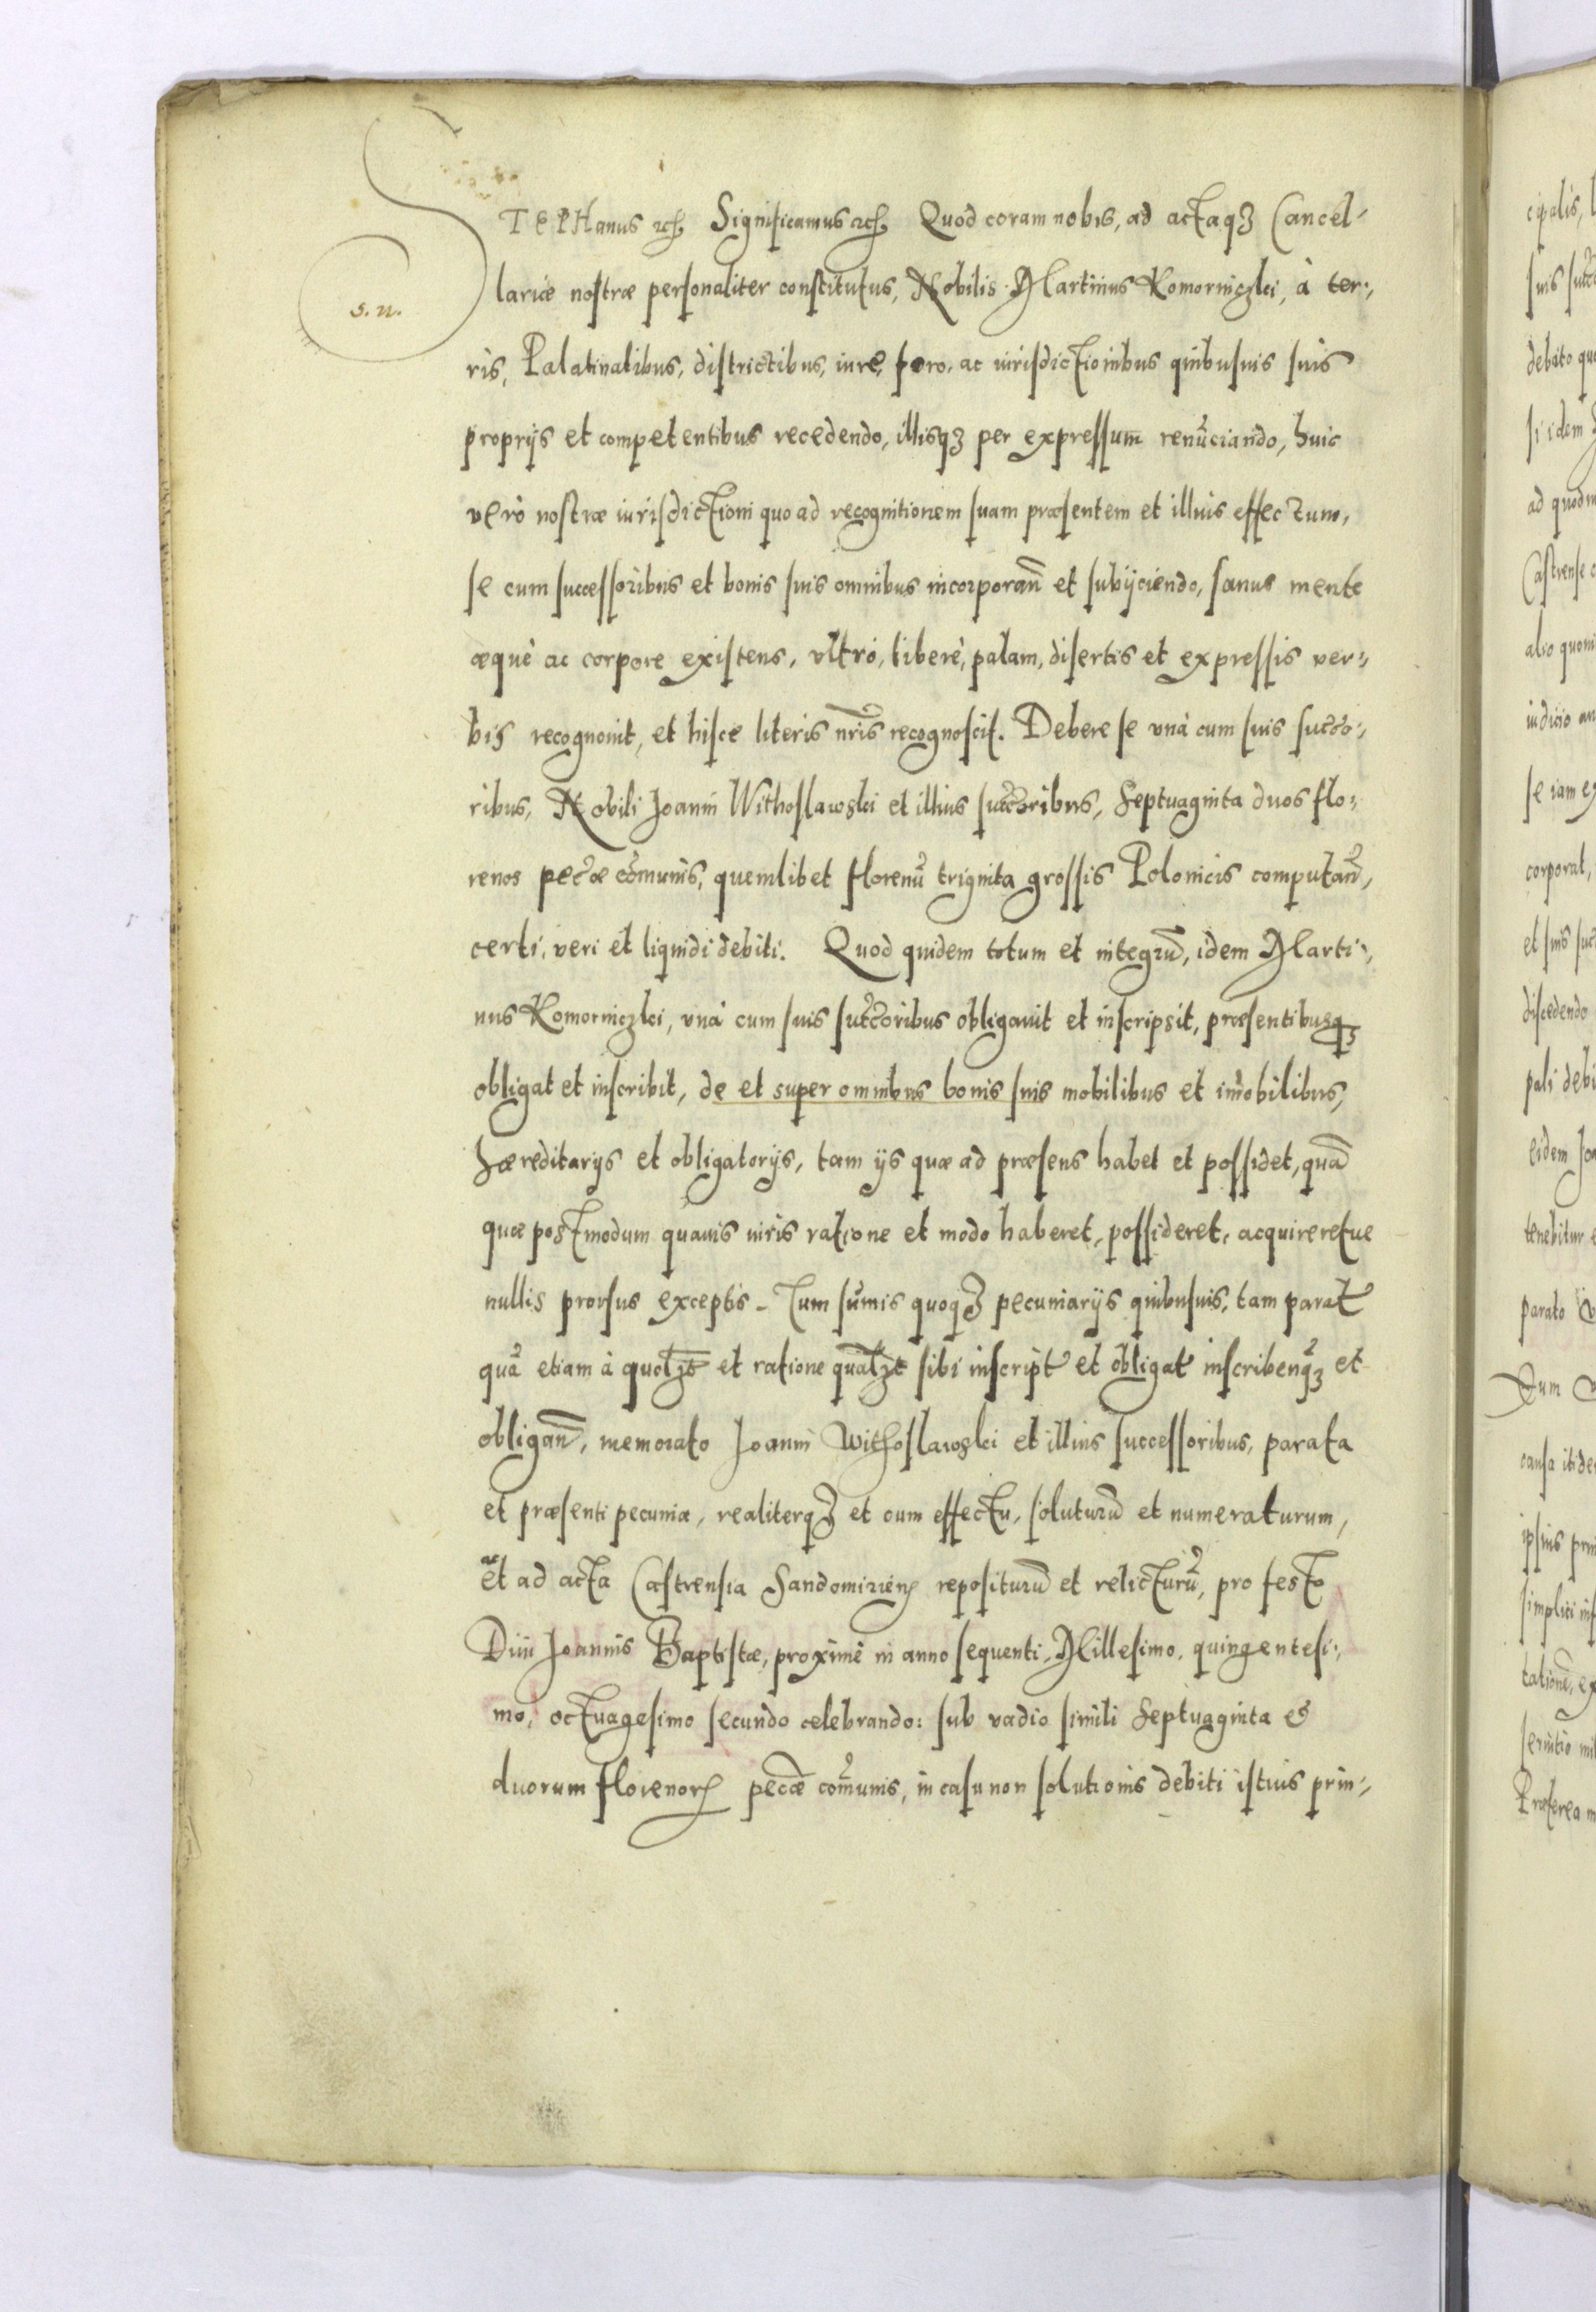 STEPHanus etc. Significamus etc. Quod coram nobis, ad actaq3 Cancel-
s. n.
lariæ nostræ personaliter constitutus, Nobilis Martinus Komorniczki, à ter-
ris, Palatinatibus, districtibus, iure, foro, ac iurisdictionibus quibusuis suis
proprijs et competentibus recedendo, illisq3 per expressum renũciando, huic
verò nostræ iurisdictioni quo ad recognitionem suam præsentem et illius effectum,
se cum successoribus et bonis suis omnibus incorporan̄ et subijciendo, sanus mente
æquè ac corpore existens, vltrò, liberè, palam, disertis et expressis ver-
bis recognouit, et hisce literis nr̃is recognoscit. Debere se vnà cum suis succo-
ribus, Nobili Joanni Withoslawski et illius succoribus, Septuaginta duos flo-
renos pec̃æ cõmunis, quemlibet florenũ triginta grossis Polonicis computan̄,
certi, veri et liquidi debiti. Quod quidem totum et integrũ, idem Marti-
nus Komorniczki, vnà cum suis succoribus obligauit et inscripsit, præsentibusq3
obligat et inscribit, de et super omnibus bonis suis mobilibus et im̃obilibus,
hæreditarijs et obligatorijs, tam ijs quæ ad præsens habet et possidet, quã
quæ postmodum quauis iuris ratione et modo haberet, possideret, acquireretue
nullis prorsus exceptis. Tum sum̃is quoq3 pecuniarijs quibusuis, tam parat
quã etiam à quol3t et ratione qual3t sibi inscript et obligat inscribenq3 et
obligan̄, memorato Joanni Withoslawski et illius successoribus, parata
et præsenti pecunia, realiterq3 et cum effectu, soluturũ et numeraturum,
et ad acta Castrensia Sandomirien̄ repositurũ et relicturũ, pro festo
Diui Joannis Baptistæ, proximè in anno sequenti, Millesimo, quingentesi-
mo, octuagesimo secundo celebrando: sub vadio simili Septuaginta et
duorum florenor pec̃æ com̃unis, in casu non solutionis debiti istius prin-